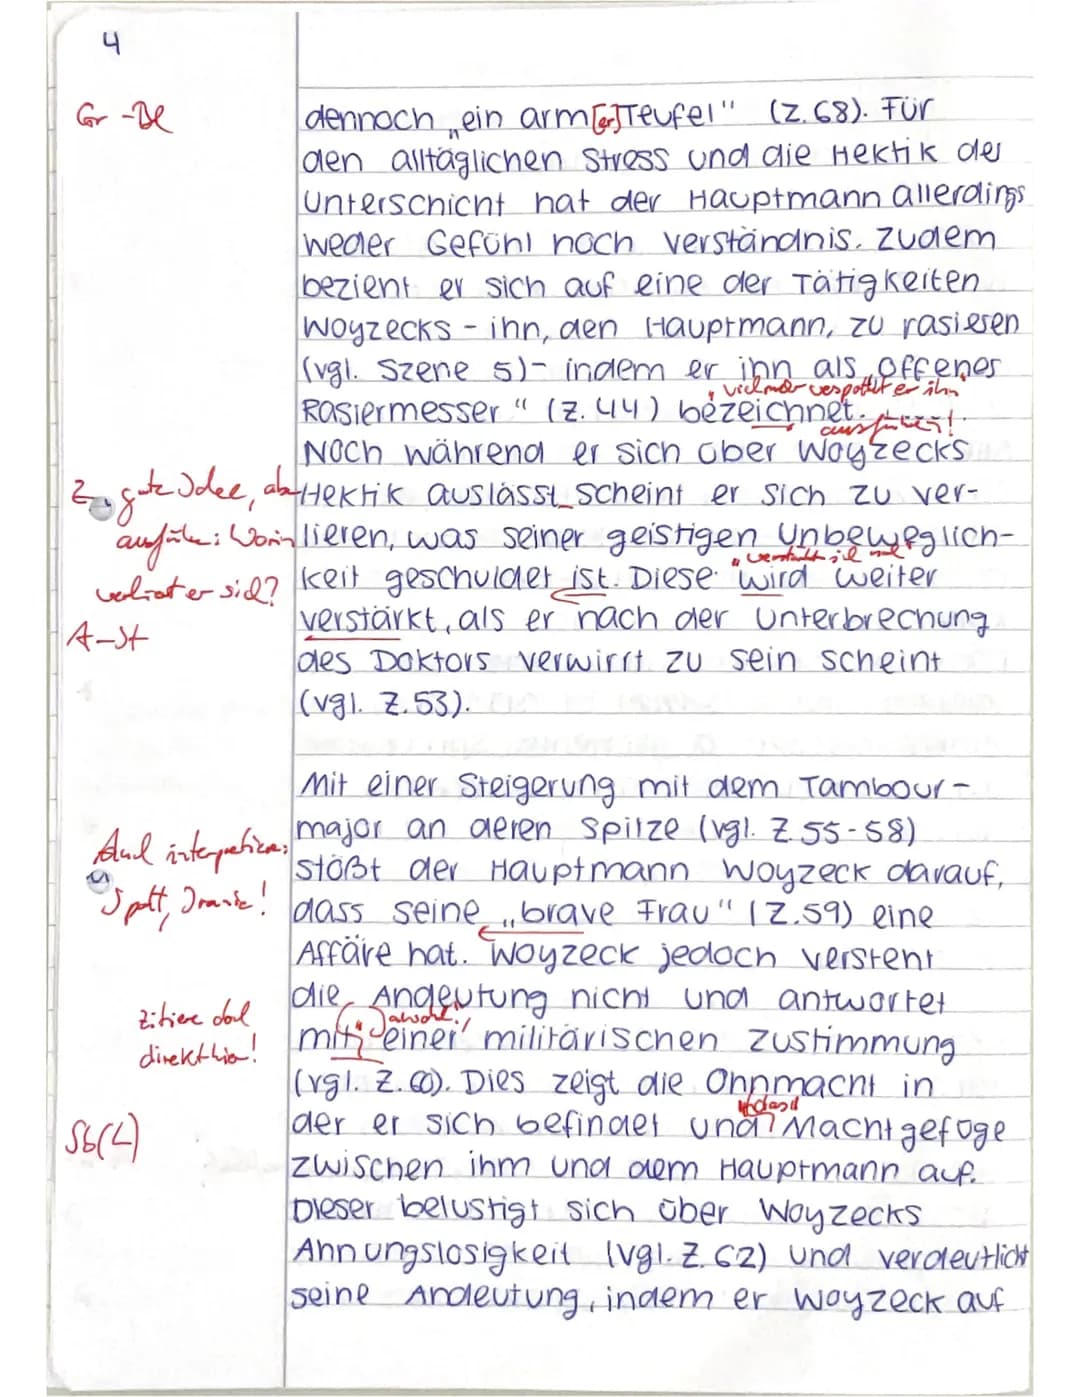 4
Gr - Dekl
dennoch „ein arm[er] Teufel" (Z. 68). Für
den alltäglichen Stress und die Hektik der
Unterschicht hat der Hauptmann allerdings
weder Gefühl noch Verständnis. Zudem
bezieht er sich auf eine der Tätigkeiten
Woyzecks - ihn, den Hauptmann, zu rasieren
(vgl. Szene 5) - indem er ihn als „offenes
vielmehr verspottet er ihn
Rasiermesser" (Z. 44) bezeichnet.
ausführen!
Noch während er sich über Woyzecks
Z gute Idee, ab Hektik auslässt scheint er sich zu ver-
ausführ.: Worin lieren, was seiner geistigen Unbeweglich-
verliert er sich? keit geschuldet ist. Diese wird weiter
A-St verstärkt, als er nach der Unterbrechung
des Doktors verwirrt zu sein scheint
(vgl. Z. 53).
Mit einer Steigerung mit dem Tambour-
major an deren Spitze (vgl. Z. 55-58)
Auch interpretieren: stößt der Hauptmann Woyzeck darauf,
Spott, Ironie! dass seine „brave Frau" (Z. 59) eine
Affäre hat. Woyzeck jedoch versteht
die Andeutung nicht und antwortet
zitiere doch mit einer militärischen Zustimmung
direkt hier! (vgl. Z. 60). Dies zeigt die Ohnmacht in
das
Sb(L) der er sich befindet und Machtgefüge
zwischen ihm und dem Hauptmann auf.
Dieser belustigt sich über Woyzecks
Ahnungslosigkeit (vgl. Z. 62) und verdeutlicht
seine Andeutung, indem er Woyzeck auf